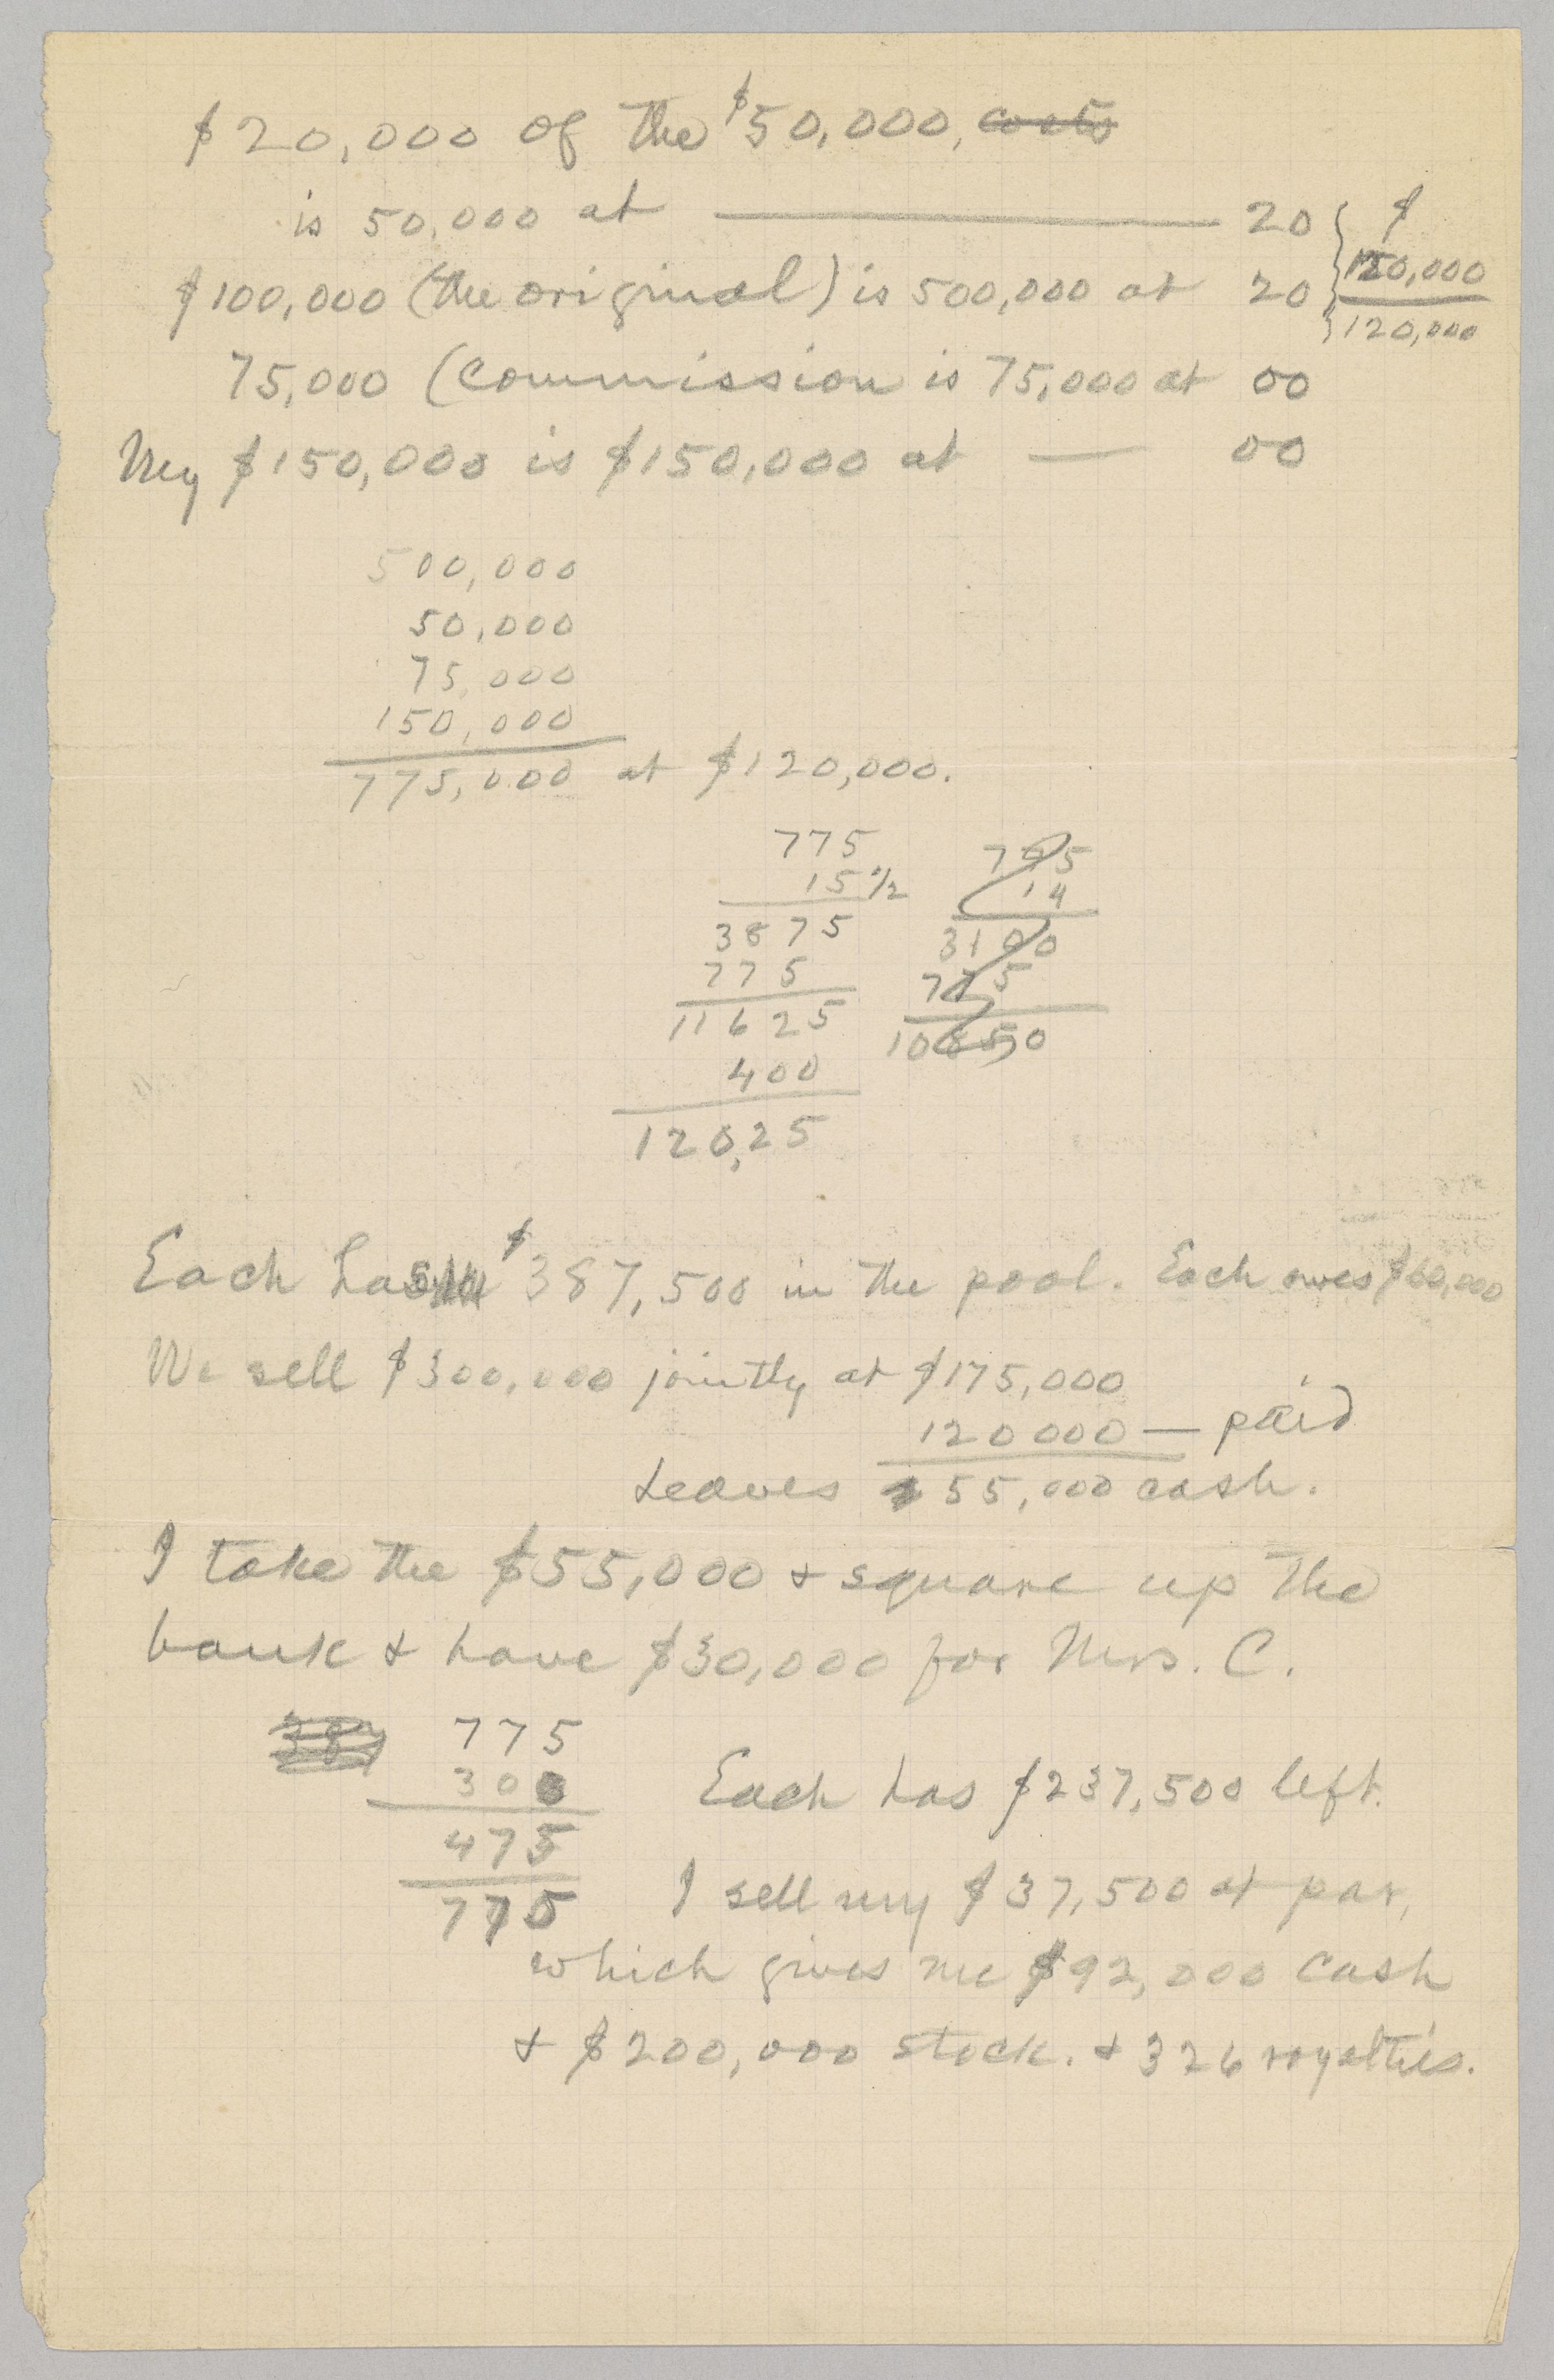 $20,000 of the $50,000, costs
is 50,000 at — 20 } $
120,000
$100,000 (the original) is 500,000 at 20 } 120,000
75,000 (commission is 75,000 at 00
My $150,000 is $150,000 at — 00
500,000
50,000
75,000
150,000
775,000 at $120,000.
775
15 1/2
3875
775
11625
400
120,25
775
14
3100
775
10850
Each has $387,500 in the pool. Each owes $60,000
We sell $300,000 jointly at $175,000
120000 — paid
Leaves 55,000 cash.
I take the $55,000 & square up the
bank & have $30,000 for Mrs. C.
387 775
300
475
775
Each has $237,500 left.
I sell my $37,500 at par,
which gives me $92,000 cash
& $200,000 stock. & 326 royalties.